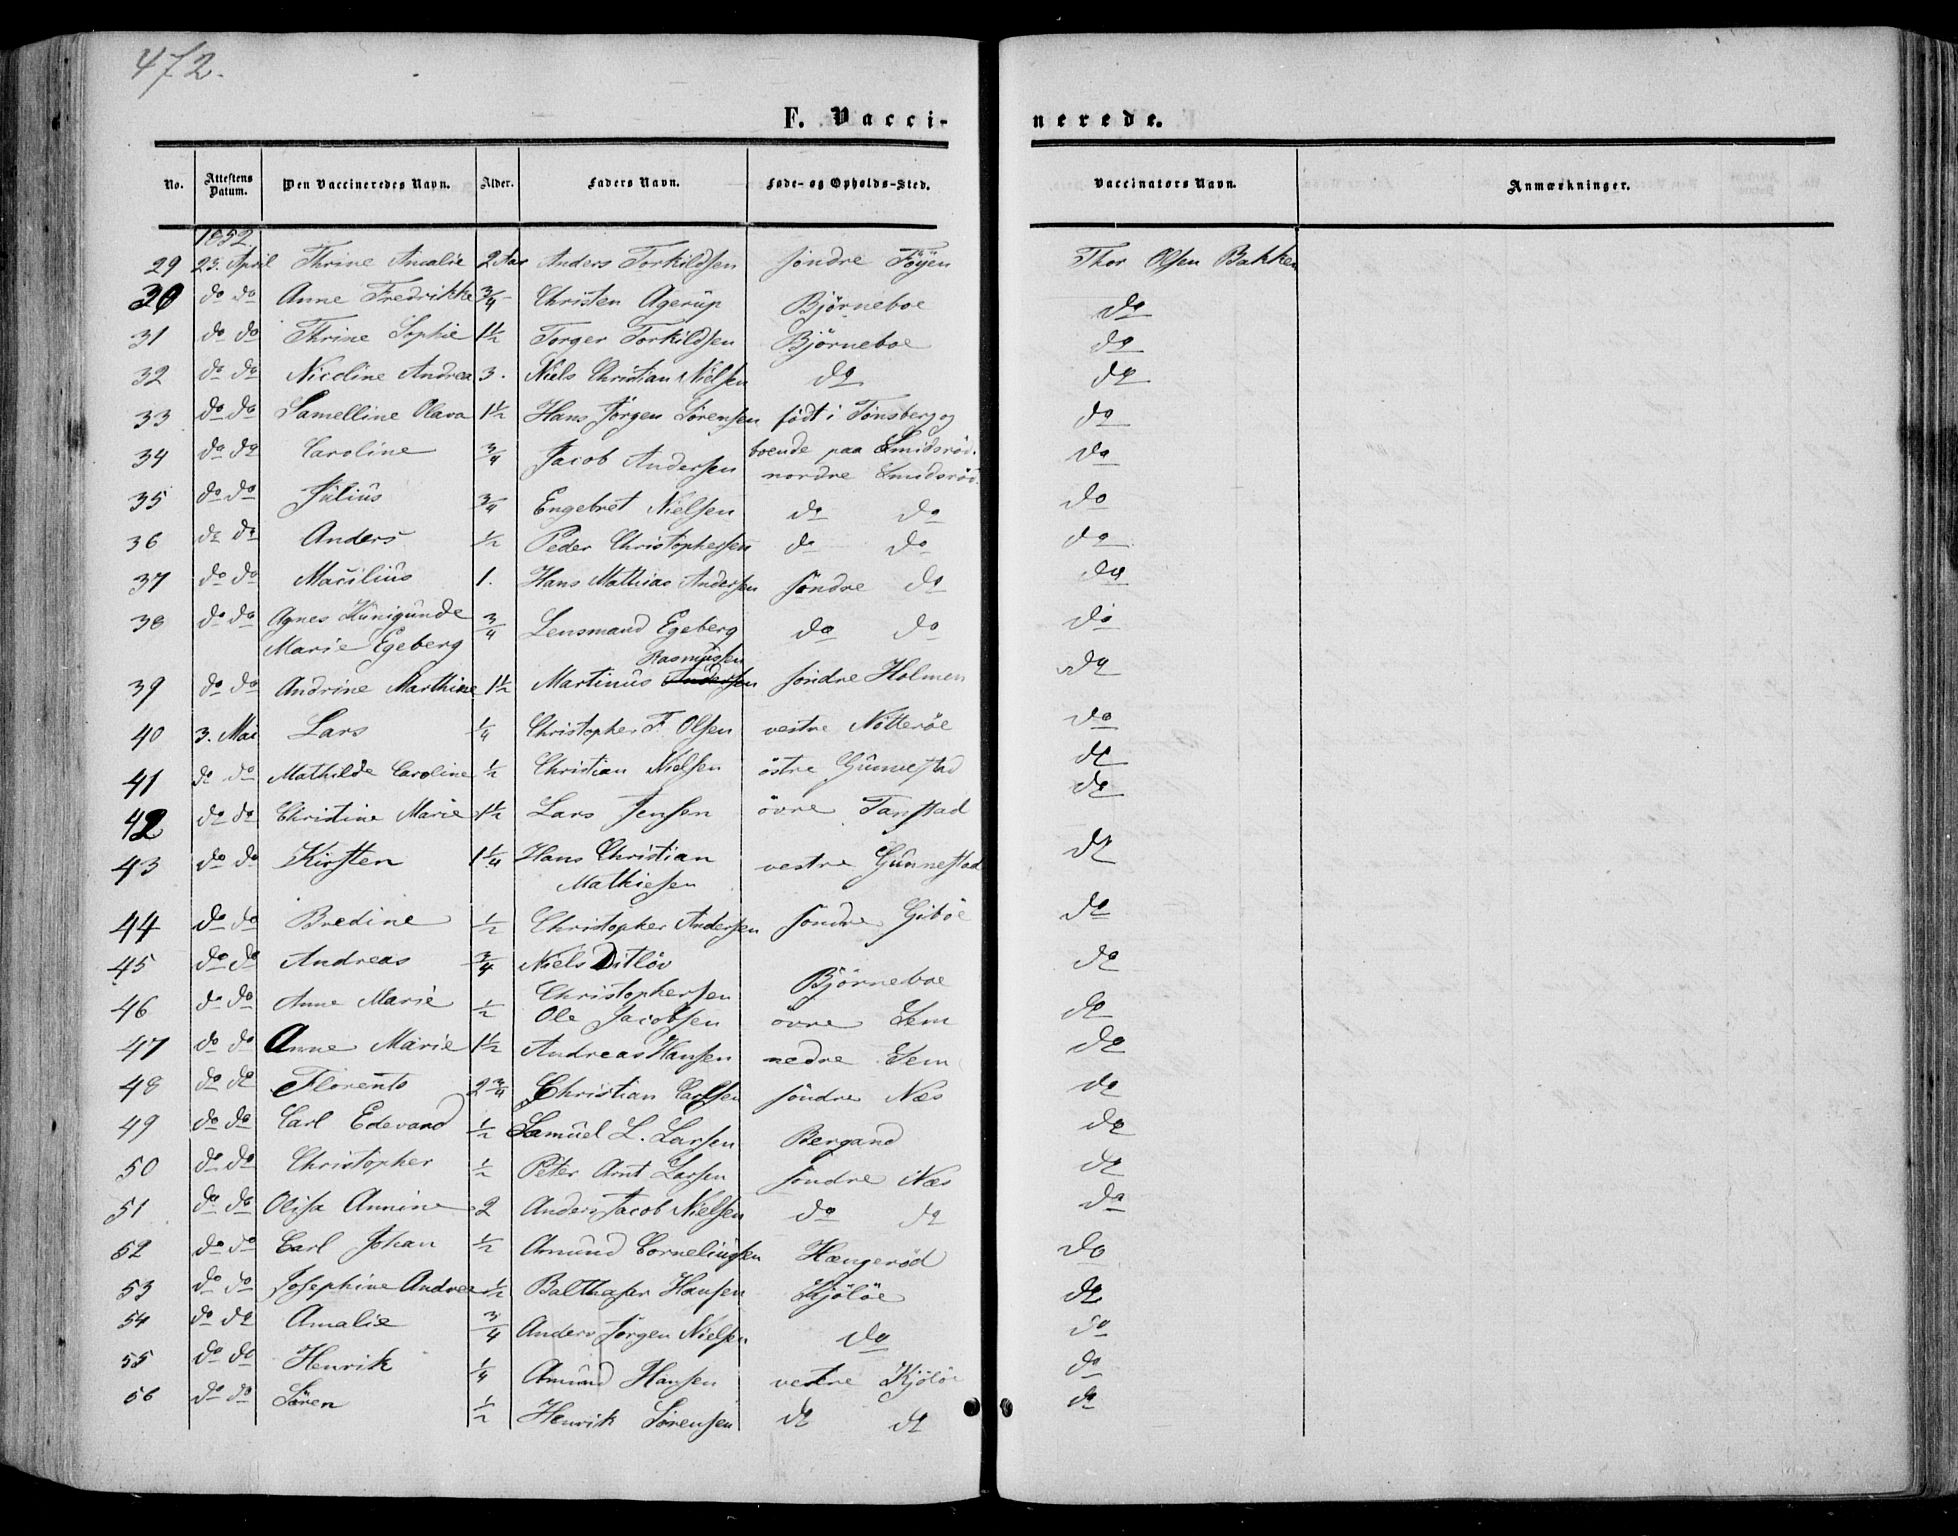 472.
F. Vacci- nerede.
No. Attestens Datum. Den Vaccineredes Navn. Alder. Faders Navn. Føde- og Opholds-Sted. Vaccinators Navn. Anmærkninger.
1852.
29 23. April Thrine Amalie 2 Aar Anders Torkildsen söndre Föyen Thor Olsen Bakken
30 do do Anne Fredrikke 3/4 Christen Agerup Björneboe do
31 do do Thrine Sophie 1 1/2 Torger Torkildsen Björneboe do
32 do do Nicoline Andrea 3. Niels Christian Nielsen do do
33 do do Samelline Olava 1 1/2 Hans Jörgen Sörensen födt i Tönsberg og do
boende paa Smidsröd.
34 do do Caroline 3/4 Jacob Andersen nordre Smidsröd do
35 do do Julius 3/4 Engebret Nielsen do do do
36 do do Anders 1/2 Peder Christophersen do do do
37 do do 1. Hans Mathias Andersen söndre do do
38 do do Agnes Kunigunde 3/4 Lensmand Egeberg do do do
Marie Egeberg
Rasmussen
39 do do Andrine Marthine 1 1/2 Martinus Andersen söndre Holmen do
40 3. Mai Lars 1/4 Christopher F. Olsen vestre Nötteröe do
41 do do Mathilde Caroline 1/2 Christian Nielsen östre Gunnestad do
42 do do Christine Marie 1 1/2 Lars Jensen övre Tanstad do
43 do do Kirsten 1 1/4 Hans Christian vestre Gunnestad do
Mathiesen
44 do do Bredine 1/2 Christopher Andersen söndre Giböe do
45 do do Andreas 3/4 Niels Ditlöv Björneboe do
Christophersen
46 do do Anne Marie 1/2 Ole Jacobsen övre Sem do
47 do do Anne Marie 1 1/2 Andreas Hansen nedre Sem do
48 do do Florents 2 3/4 Christian Carlsen söndre Næs do
49 do do Carl Edevard 1/2 Samuel L. Larsen Bergand do
50 do do Christopher 1/2 Peter Arnt Larsen söndre Næs do
51 do do Olissa Annine 2 Anders Jacob Nielsen do do do
52 do do Carl Johan 1/2 Amund Corneliussen Hængeröd do
53 do do Josephine Andrea 1/2 Balthaser Hansen Kjölöe do
54 do do Amalie 3/4 Anders Jörgen Nielsen do do
55 do do Henrik 1/4 Amund Hansen vestre Kjölöe do
56 do do Sören 1/2 Henrik Sörensen do do do